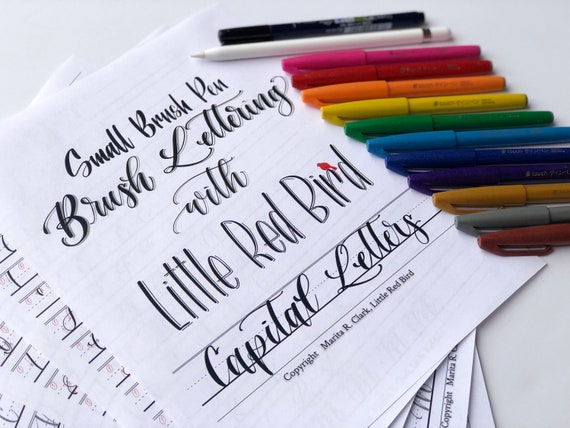 Small Brush Pen
Brush Lettering
with
Little Red Bird
Capital Letters
Copyright Marita R. Clark, Little Red Bird
Copyright Marita R.
touch
touch
touch